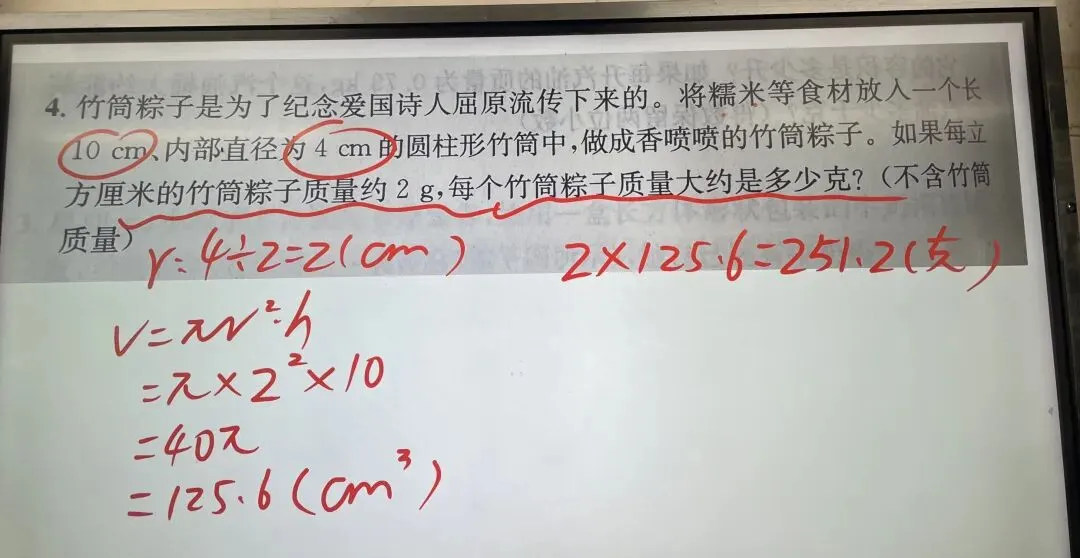 4. 竹筒粽子是为了纪念爱国诗人屈原流传下来的。将糯米等食材放入一个长
10 cm、内部直径为 4 cm 的圆柱形竹筒中,做成香喷喷的竹筒粽子。如果每立
方厘米的竹筒粽子质量约 2 g,每个竹筒粽子质量大约是多少克?(不含竹筒
质量)
r: 4÷2=2(cm)
2×125.6=251.2(克)
V=πr²·h
=π×2²×10
=40π
=125.6(cm³)